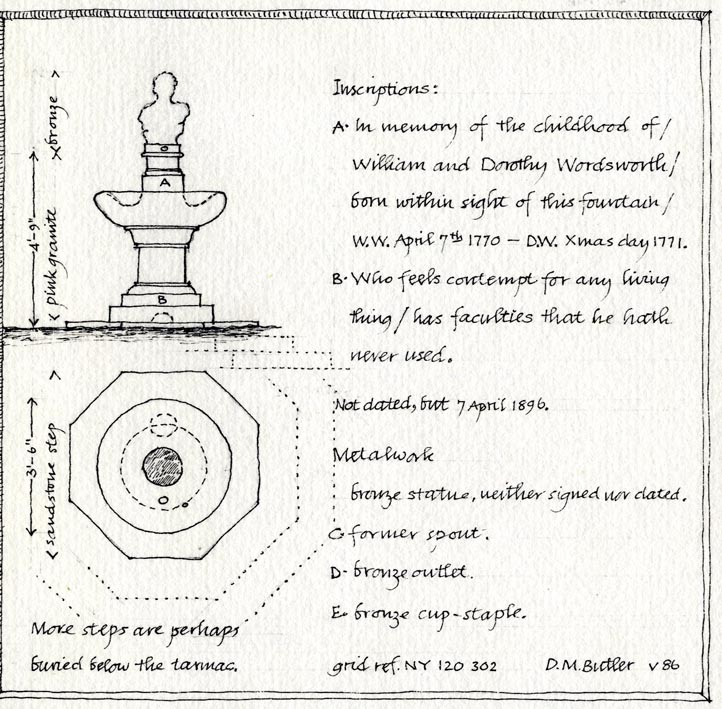 bronze
4'-9"
pink granite
A
B
3'-6"
sandstone step
More steps are perhaps
buried below the tarmac.
Inscriptions:
A· In memory of the childhood of /
William and Dorothy Wordsworth /
born within sight of this fountain /
W.W. April 7th 1770 – D.W. Xmas day 1771.
B· Who feels contempt for any living
thing / has faculties that he hath
never used.
Not dated, but 7 April 1896.
Metalwork
bronze statue, neither signed nor dated.
C- former spout.
D- bronze outlet.
E- bronze cup-staple.
grid ref. NY 120 302
D.M. Butler v 86